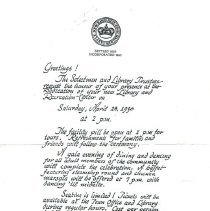 SETTLED 1639
INCORPORATED 1641
Greetings!
The Selectmen and Library Trustees
request the honour of your presence at the
dedication of your new Library and
Recreation Center on
Saturday, April 28, 1990
at 2 p.m.
The facility will be open at 1 pm for
tours. Refreshments for families and
friends will follow the ceremony.
A gala evening of dining and dancing
for all adult members of the community
will complete the celebration. A buffet
featuring steamship round and chicken
will be served at 7 p.m. with
dancing 'til midnite.
Seating is limited! Tickets will be
available at the Town Office and Library
during regular hours. Cost per person